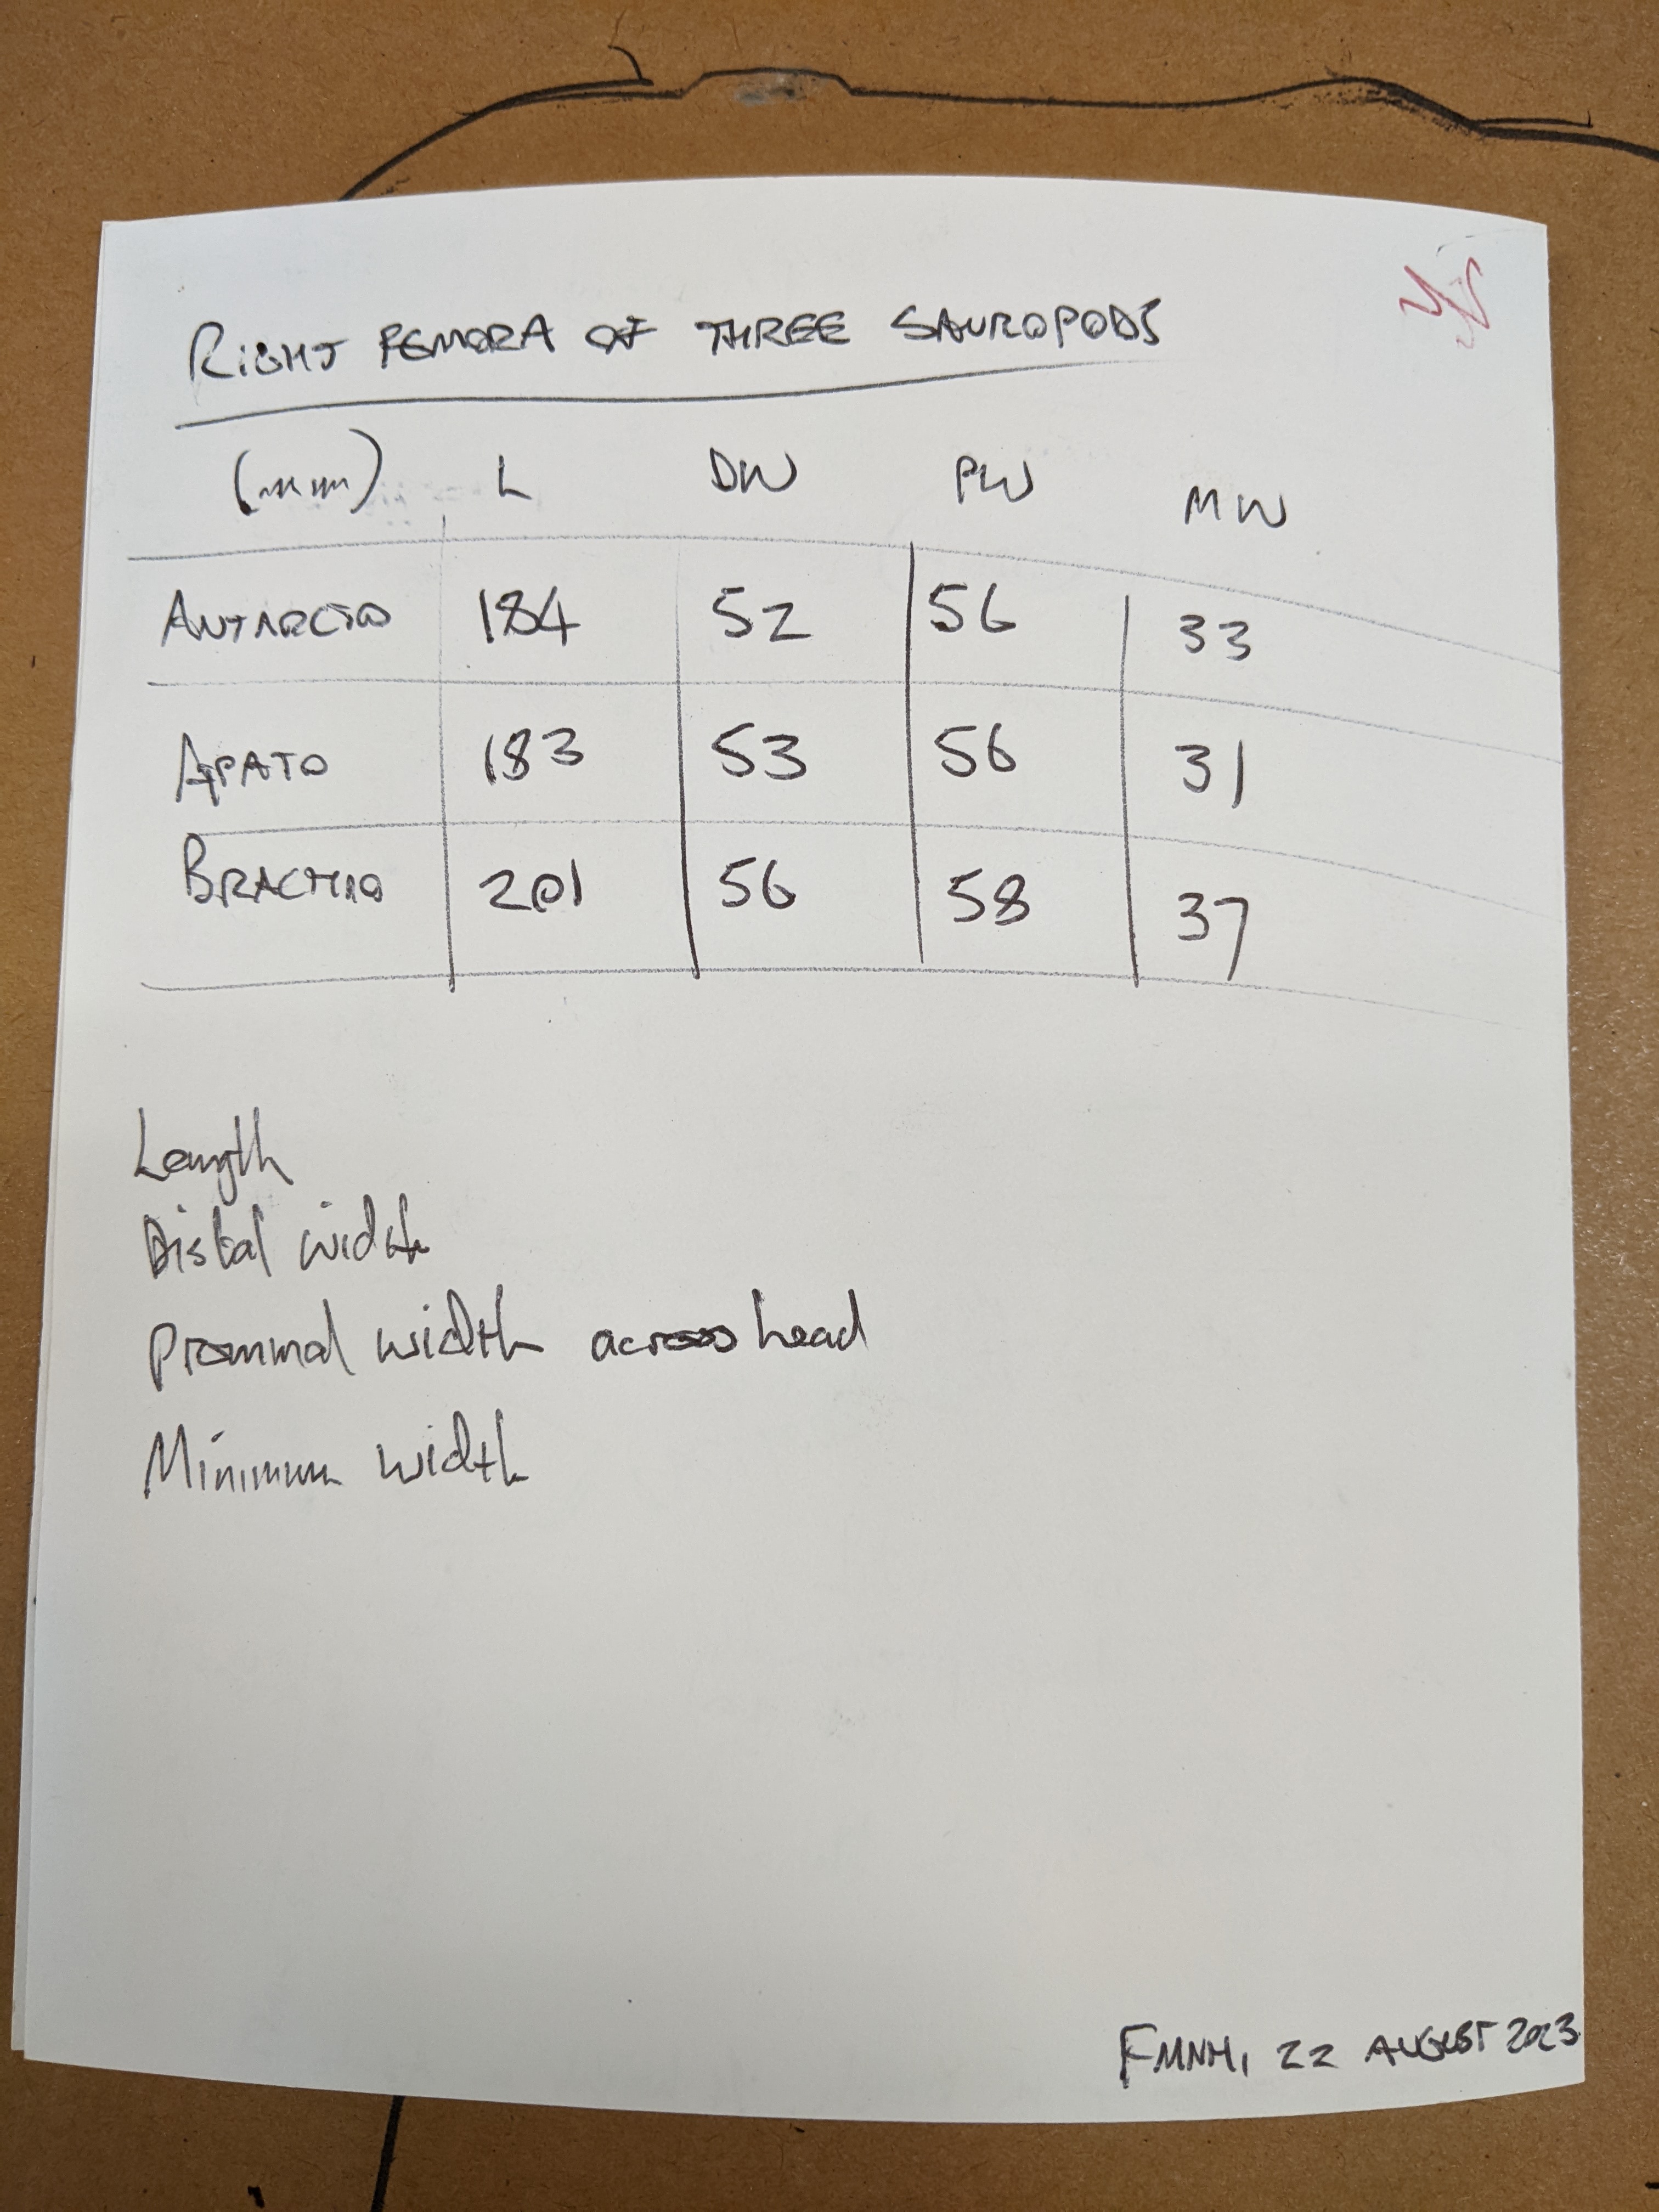 RIGHT FEMORA OF THREE SAUROPODS
(mm) L DW PW MW
ANTARCTO 184 52 56 33
APATO 183 53 56 31
BRACHIO 201 56 58 37
Length
Distal width
Proximal width across head
Minimum width
FMNH, 22 AUGUST 2023